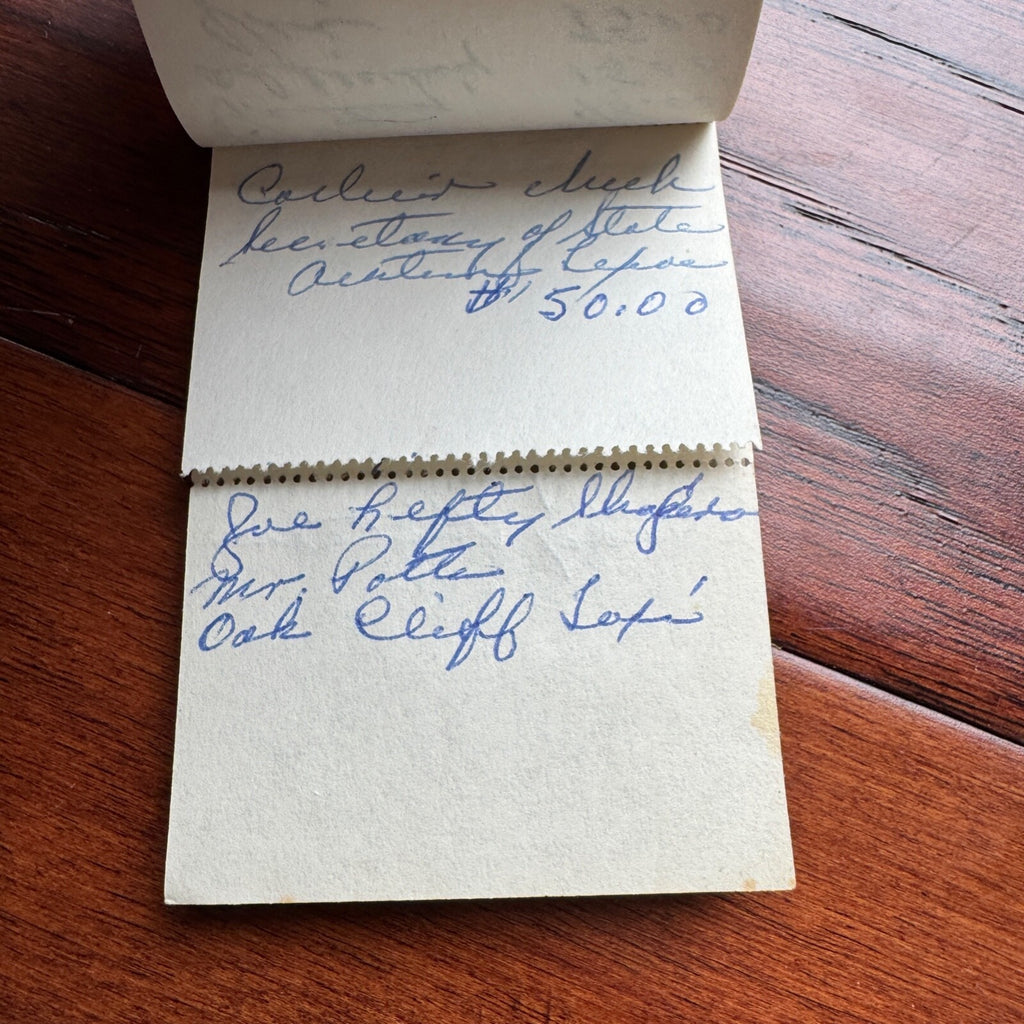 Cashier check
Secretary of State
Austin, Texas
$ 50.00
Joe Hefty
Mr. Potts
Oak Cliff Texas